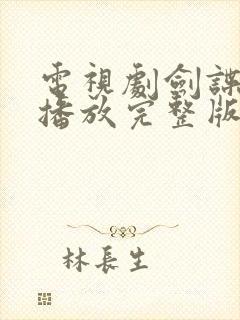 電視劇劍諜
播放完整版
林長生